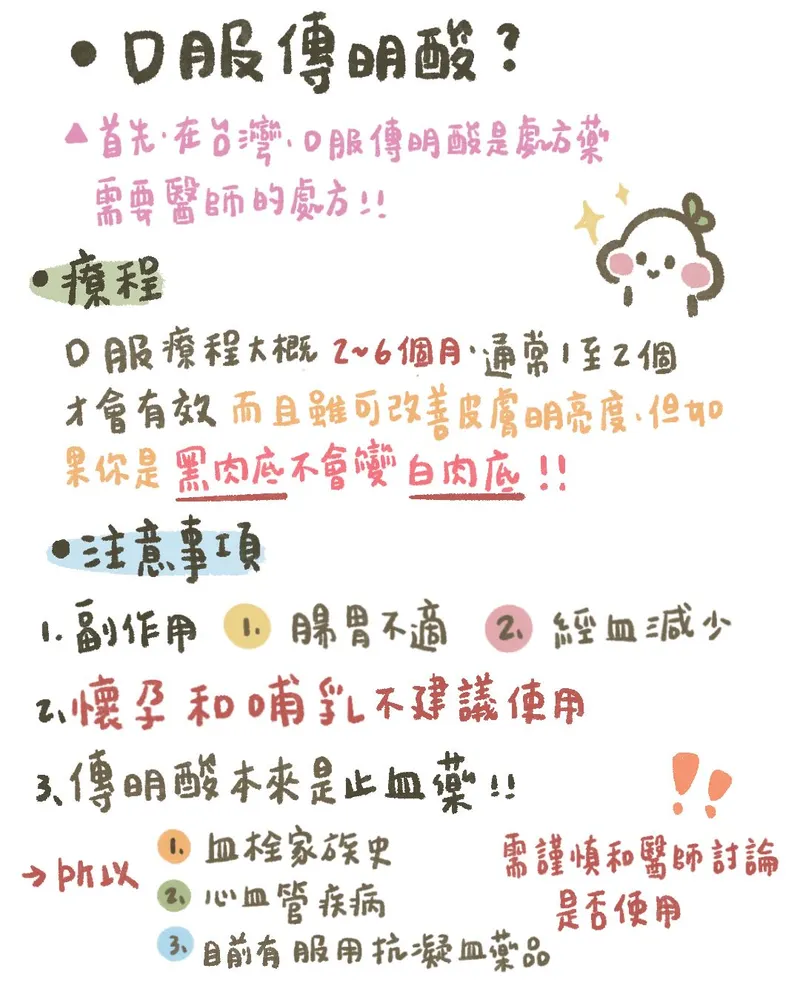 • 口服傳明酸?
▲首先,在台灣,口服傳明酸是處方藥
需要醫師的處方!!
•療程
口服療程大概 2~6個月,通常1至2個
才會有效 而且雖可改善皮膚明亮度,但如
果你是 黑肉底不會變 白肉底!!
•注意事項
1. 副作用 1. 腸胃不適 2. 經血減少
2、懷孕和哺乳不建議使用
3、傳明酸本來是止血藥!!
1. 血栓家族史
需謹慎和醫師討論
→所以 2. 心血管疾病
是否使用
3. 目前有服用抗凝血藥品
!!